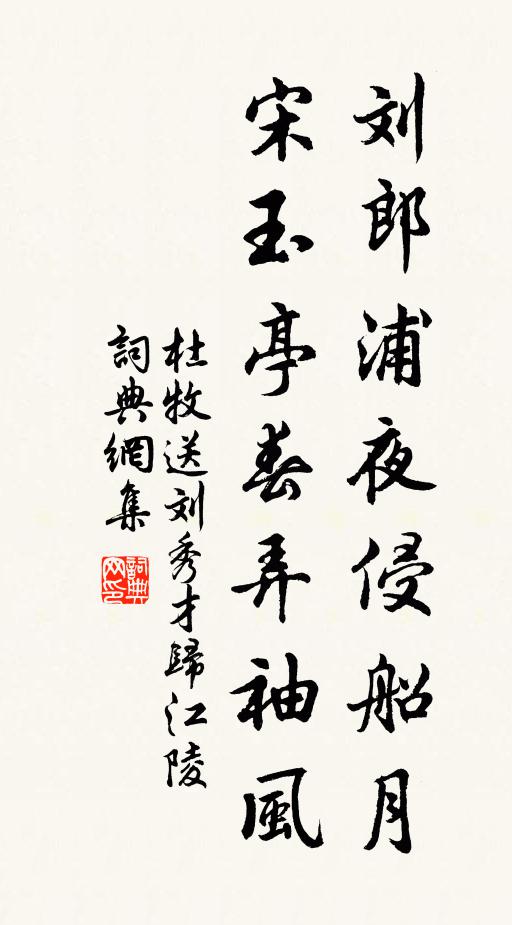 刘郎浦夜侵船月
宋玉亭春弄袖風
杜牧送刘秀才歸江陵
詞典網集
詞典网印